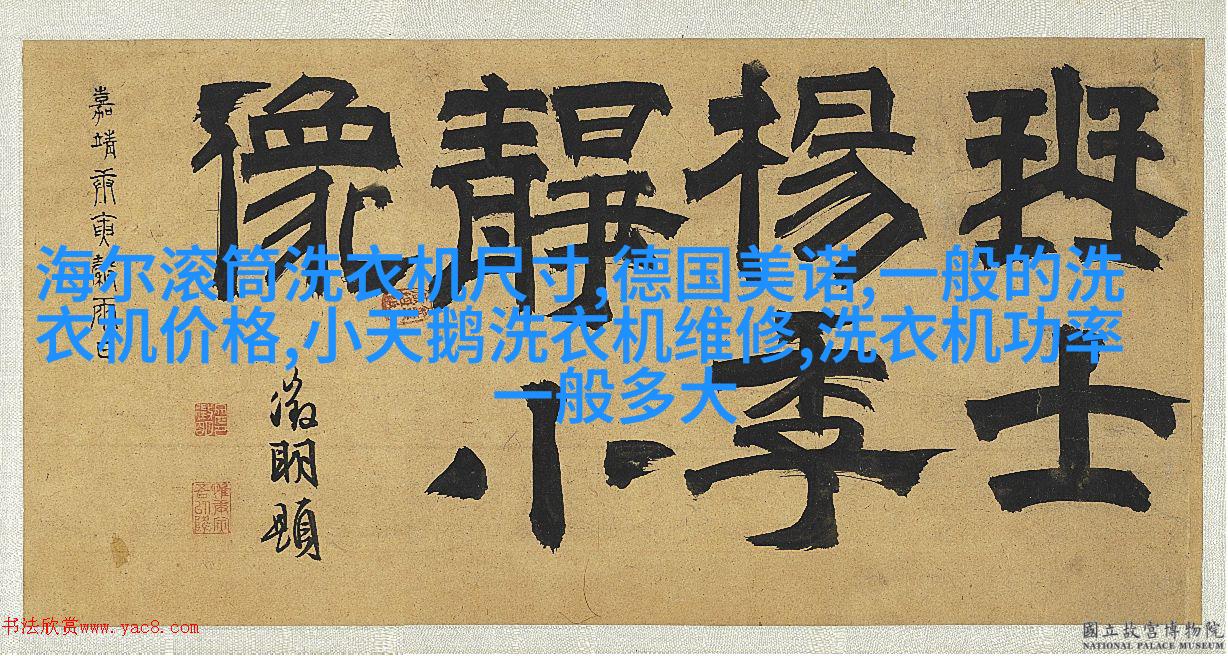 班士
楊季
靜小
像
嘉靖庚寅穀雨日
徵明題
海尔滚筒洗衣机尺寸,德国美诺,一般的洗
衣机价格,小天鹅洗衣机维修,洗衣机功率
一般多大
书法欣赏www.yac8.com
國立故宮博物院
NATIONAL PALACE MUSEUM